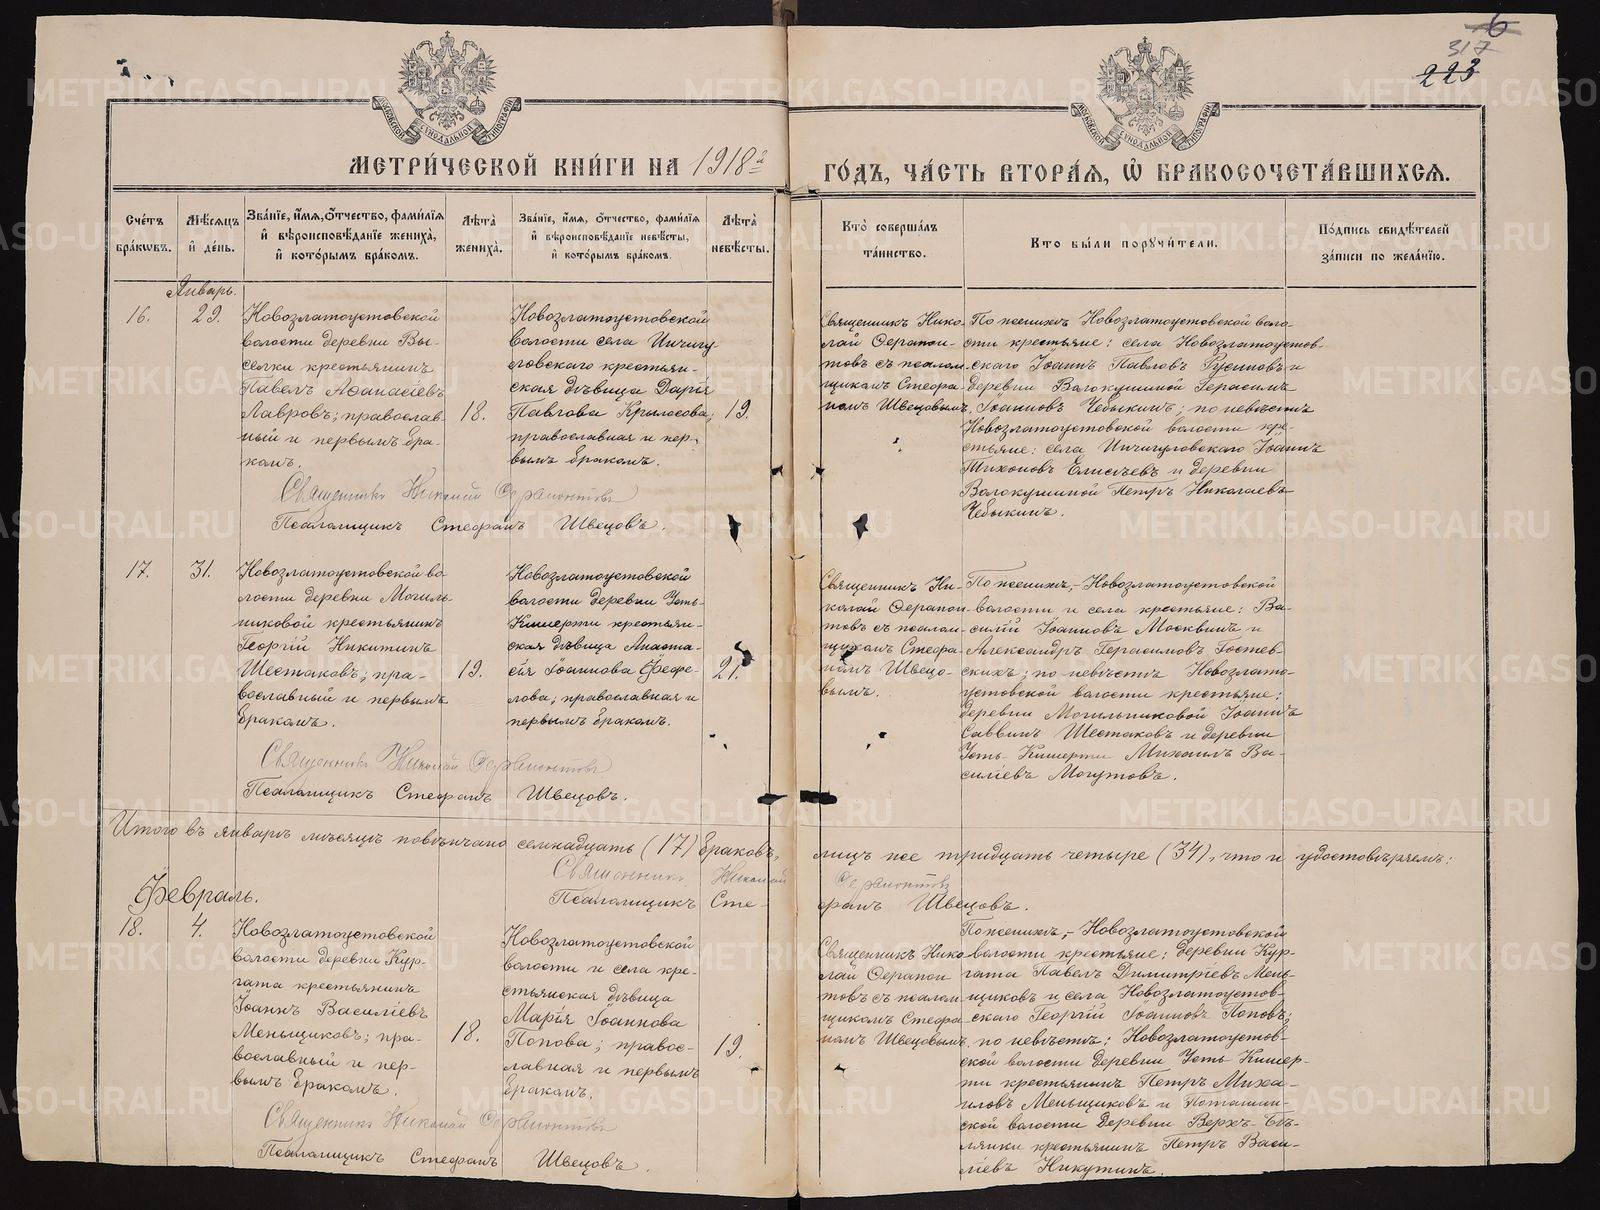 6
317
223
МЕТРИ́ЧЕСКОЙ КНИ́ГИ НА 1918 г. ГО́ДЪ, ЧА́СТЬ ВТОРА́Я, Ѽ БРАКОСОЧЕТА́ВШИХСЯ.
Сче́тъ бра́кѡвъ.
Мѣ́сяцъ и́ де́нь.
Зва́нїе, и́мя, ѻ́тчество, фами́лїя
и́ вѣроисповѣ́данїе жениха̀,
и́ кото́рымъ бра́комъ.
Лѣта̀ жениха̀.
Зва́нїе, и́мя, ѻ́тчество, фами́лїя
и́ вѣроисповѣ́данїе невѣ́сты,
и́ кото́рымъ бра́комъ.
Лѣта̀ невѣ́сты.
Кто̀ соверша́лъ та́инство.
Кто бы́ли порꙋчи́тели.
По́дпись свидѣ́телей за́писи по жела́нїю.
Январь.
16.
29.
Новозлатоустовской
волости деревни Вы-
селки крестьянинъ
Павелъ Аѳанасіевъ
Лавровъ; православ-
ный и первымъ бра-
комъ.
18.
Новозлатоустовской
волости села Ичигу
ловскаго крестьян-
ская дѣвица Дарія
Павлова Крылосова;
православная и пер-
вымъ бракомъ.
19.
Священникъ Нико-
лай Ѳерапон-
товъ съ псалом-
щикомъ Стефа-
номъ Швецовымъ
По женихѣ Новозлатоустовской воло-
сти крестьяне: села Новозлатоустов-
скаго Іоаннъ Павловъ Русиновъ и
деревни Волокушиной Герасимъ
Іоанновъ Чебыкинъ; по невѣстѣ
Новозлатоустовской волости кре-
стьяне: села Ичигуловскаго Іоаннъ
Тихоновъ Елисѣевъ и деревни
Волокушиной Петръ Николаевъ
Чебыкинъ.
Священникъ Николай Ѳерапонтовъ
Псаломщикъ Стефанъ Швецовъ.
17.
31.
Новозлатоустовской во
лости деревни Могиль-
никовой крестьянинъ
Георгій Никитинъ
Шестаковъ; пра-
вославный и первымъ
бракомъ.
19.
Новозлатоустовской
волости деревни Усть-
Кишерти крестьян-
ская дѣвица Анаста-
сія Іоаннова Фефе-
лова; православная и
первымъ бракомъ.
21.
Священникъ Ни-
колай Ѳерапон-
товъ съ псалом-
щикомъ Стефа-
номъ Швецо-
вымъ.
По женихѣ,- Новозлатоустовской
волости и села крестьяне: Ва-
силій Іоанновъ Москвинъ и
Александръ Герасимовъ Гостев-
скихъ; по невѣстѣ Новозлато-
устовской волости крестьяне:
деревни Могильниковой Іоаннъ
Саввинъ Шестаковъ и деревни
Усть-Кишерти Михаилъ Ва-
силіевъ Могутовъ.
Священникъ Николай Ѳерапонтовъ
Псаломщикъ Стефанъ Швецовъ.
Итого въ январѣ мѣсяцѣ повѣнчано семнадцать (17) браковъ, лицъ же тридцать четыре (34), что и удостовѣряемъ:
Священникъ Николай Ѳерапонтовъ
Псаломщикъ Сте- фанъ Швецовъ.
Февраль.
18.
4.
Новозлатоустовской
волости деревни Кур-
гата крестьянинъ
Іоаннъ Василіевъ
Меньщиковъ; пра-
вославный и пер-
вымъ бракомъ.
18.
Новозлатоустовской
волости и села кре-
стьянская дѣвица
Марія Іоаннова
Попова; правос-
лавная и первымъ
бракомъ.
19.
Священникъ Нико-
лай Ѳерапон-
товъ съ псалом-
щикомъ Стефа-
номъ Швецовымъ.
По женихѣ,- Новозлатоустовской
волости крестьяне: деревни Кур-
гата Павелъ Димитріевъ Мень-
щиковъ и села Новозлатоустов-
скаго Георгій Іоанновъ Поповъ;
по невѣстѣ: Новозлатоустов-
ской волости деревни Усть Кишер-
ти крестьянинъ Петръ Миха-
иловъ Меньщиковъ и Поташин-
ской волости деревни Верхъ-Бѣ-
лянки крестьянинъ Петръ Васи-
ліевъ Никутинъ.
Священникъ Николай Ѳерапонтовъ
Псаломщикъ Стефанъ Швецовъ.
METRIKI.GASO-URAL.RU